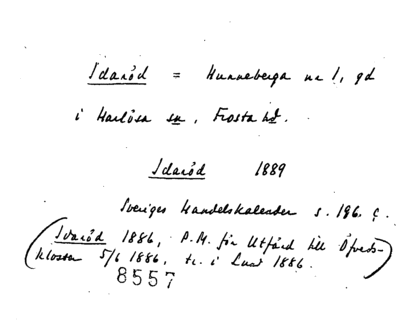 Idaröd = Hunneberga nr 1, gd
i Harlösa sn, Frosta hd.
Idaröd 1889
Sveriges Handelskalender s. 196. ç.
(Ivaröd 1886, P.M. för Utfärd till Öfveds-
kloster 5/6 1886, tr. i Lund 1886.)
8557